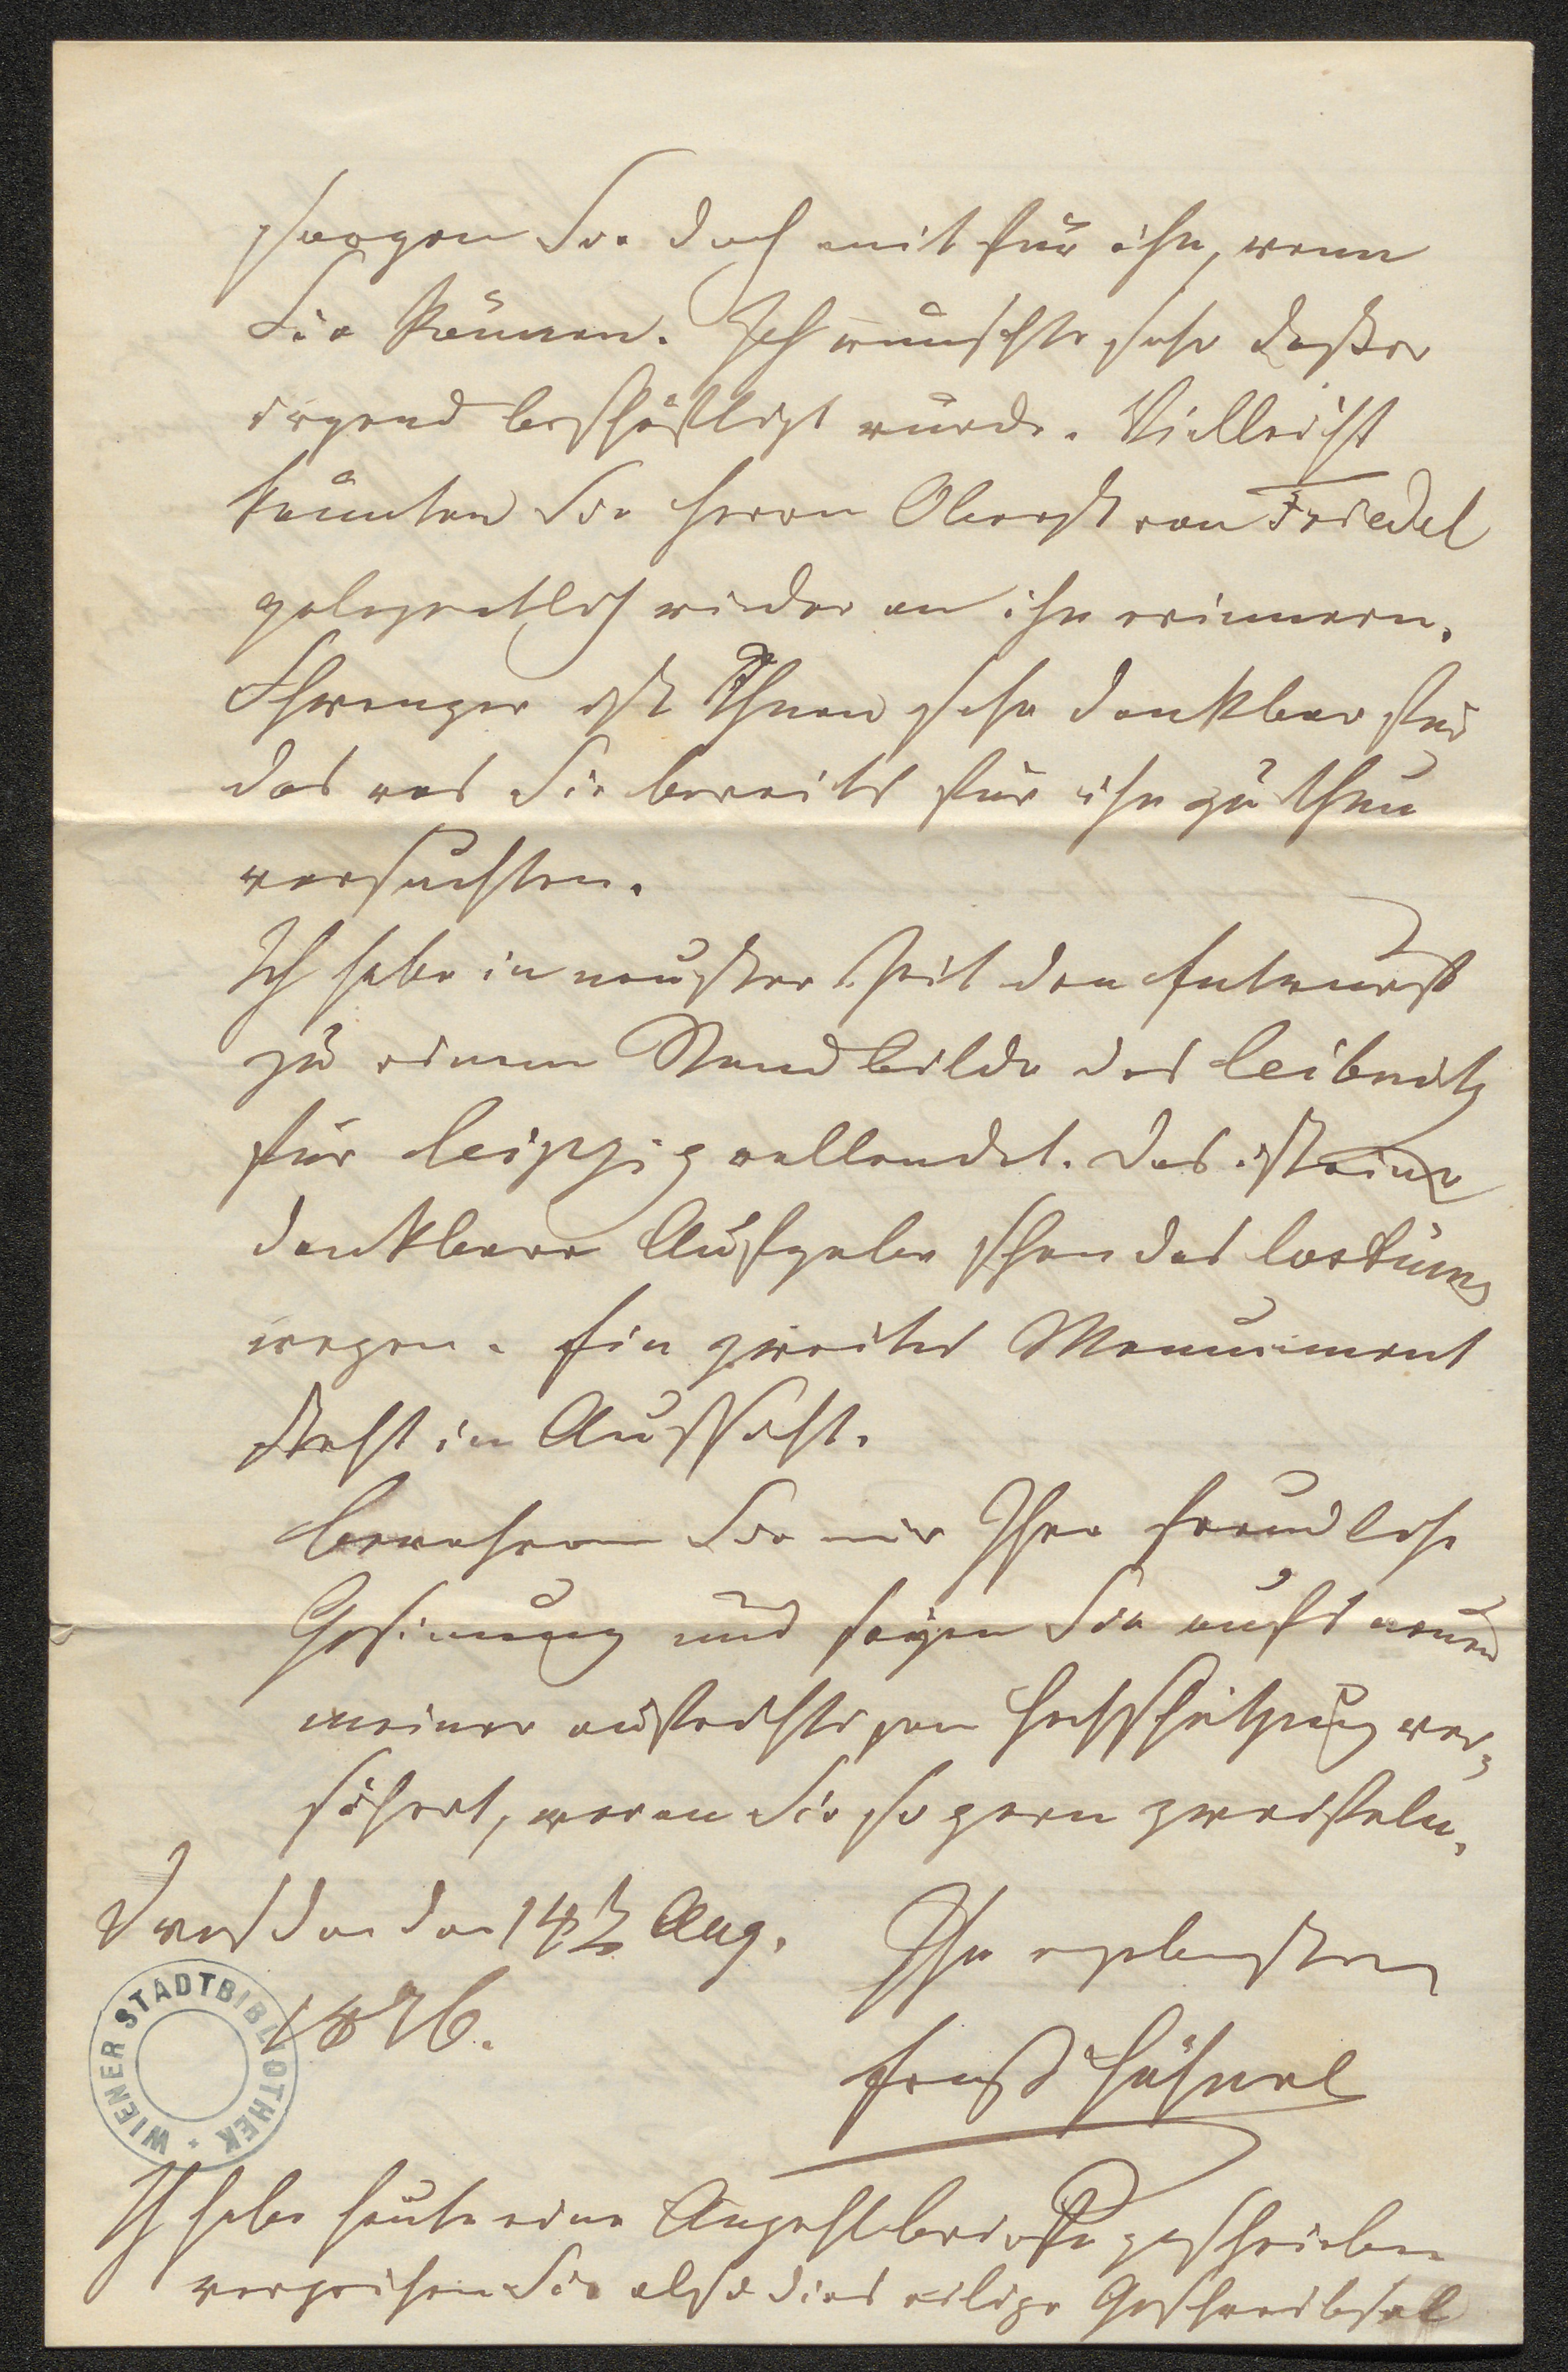 sorgen Sie doch mit für ihn, wenn
Sie können. Ich wünschte sehr daß er
irgend beschäftigt würde. Vielleicht
könnten Sie Herrn Oberst von Friedel
gelegentlich wieder an ihn erinnern.
Schwenzer ist Ihnen sehr dankbar für
das was Sie bereits für ihn zu thun
versuchten.
Ich habe in neuster Zeit den Entwurf
zu einem Standbilde des Leibnitz
für Leipzig vollendet. Das ist eine
dankbare Aufgabe schon des Costüms
wegen. Ein zweites Monument
steht in Aussicht.
Bewahren Sie mir Ihre freundliche
Gesinnung und seyen Sie aufs neue
meiner aufrichtigen Hochschätzung ver-
sichert, woran Sie so gern zweifeln.
Dresden den 14t Aug.
1876.
Ihr ergebenster
Ernst Hähnel
WIENER STADTBIBLIOTHEK
Ich habe heute eine Anzahl Briefe geschrieben
verzeihen Sie also dies eilige Geschreibsel